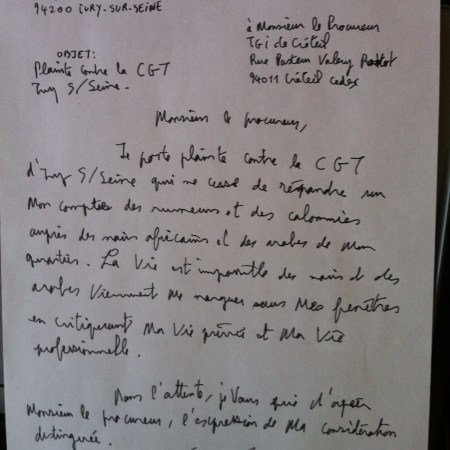 94200 IVRY-SUR-SEINE
à Monsieur le Procureur
TGI de Créteil
Rue Pasteur Valery Radot
94011 Créteil cedex
OBJET:
Plainte contre la CGT
Ivry S/Seine.
Monsieur le procureur,
Je porte plainte contre la CGT
d'Ivry S/Seine qui ne cesse de répandre sur
Mon compte des rumeurs et des calomnies
auprès des noirs africains et des arabes de Mon
quartier. La Vie est impossible des noirs et des
arabes Viennent Me narguer sous Mes fenêtres
en critiquant Ma Vie privée et Ma Vie
professionnelle.
Dans l'attente, je Vous prie d'agréer
Monsieur le procureur, l'expression de Ma considération
distinguée.